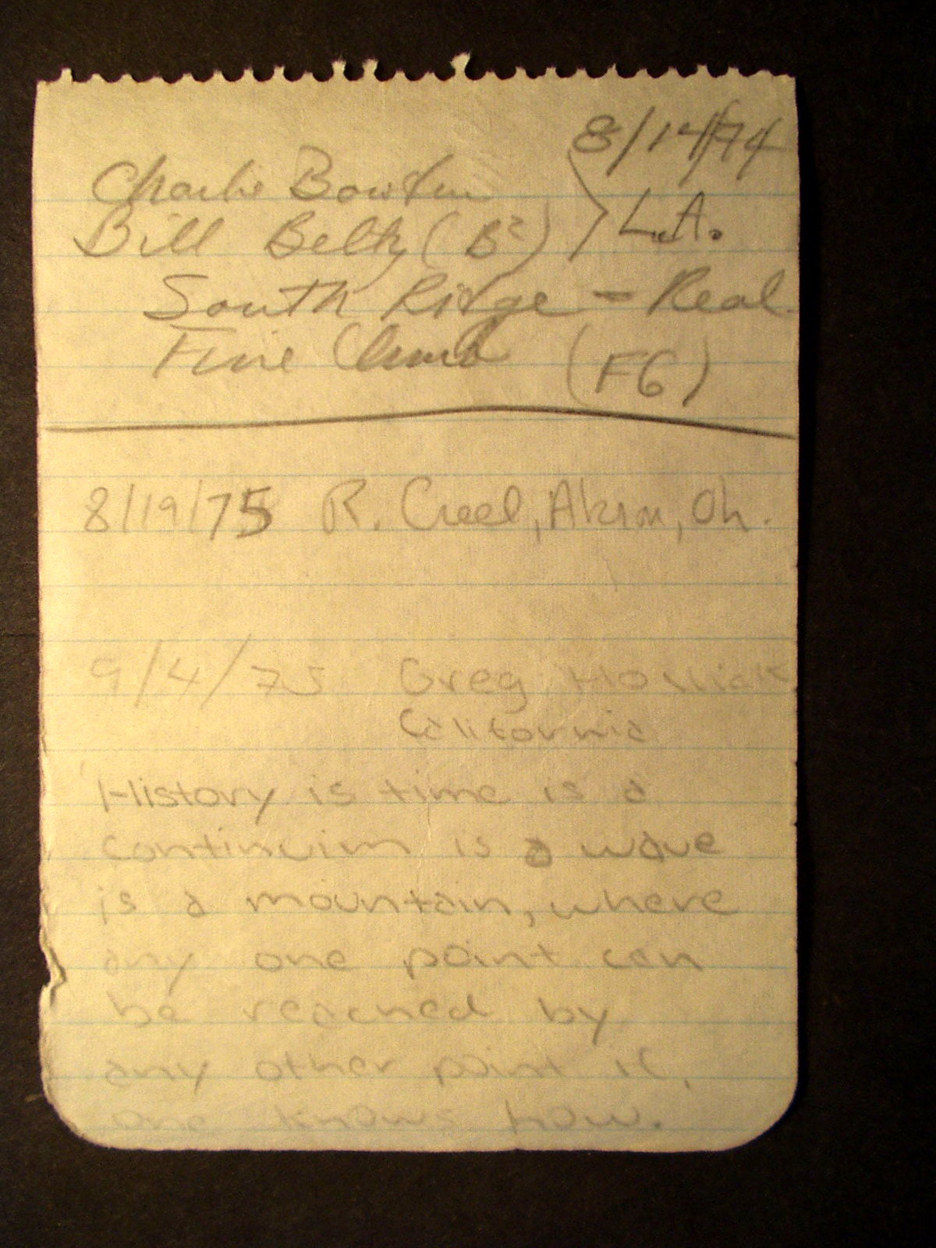 8/14/74
Charlie Bowden
Bill Belty (B²) > L.A.
South Ridge - Real
Fine Climb (F6)
8/19/75 R. Creel, Akron, Oh.
9/4/75 Greg
California
History is time is a
continuim is a wave
is a mountain, where
any one point can
be reached by
any other point if,
one knows how.